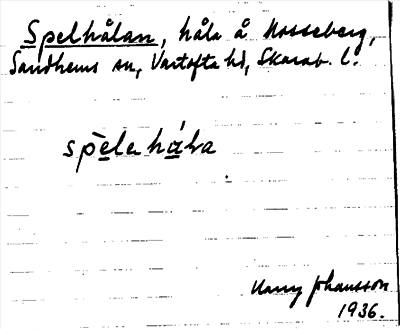 Spelhålan, håla å Mosseberg,
Sandhems sn, Vartofta hd, Skarab. l.
spèle há̱la
Harry Johansson
1936.